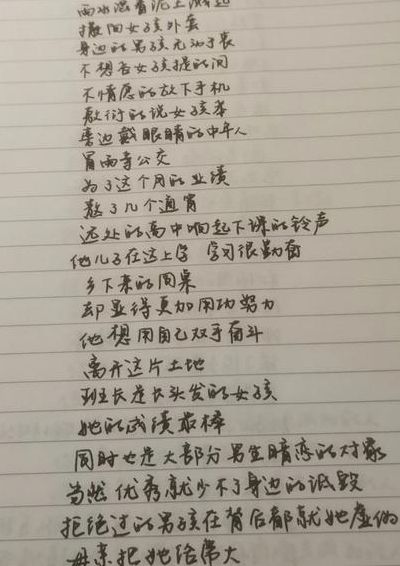 雨水混着泥土溅起
撒向女孩外套
身边的男孩无动于衷
不想答女孩提的问
不情愿的放下手机
敷衍的说女孩笨
旁边戴眼睛的中年人
冒雨等公交
为了这个月的业绩
熬了几个通宵
远处的高中响起下课的铃声
他儿子在这上学 学习很勤奋
乡下来的同桌
却显得更加用功努力
他想用自己双手奋斗
离开这片土地
班长是长头发的女孩
她的成绩最棒
同时也是大部分男生暗恋的对象
当然优秀就少不了身边的诋毁
拒绝过的男孩在背后都说她虚伪
母亲把她给伟大